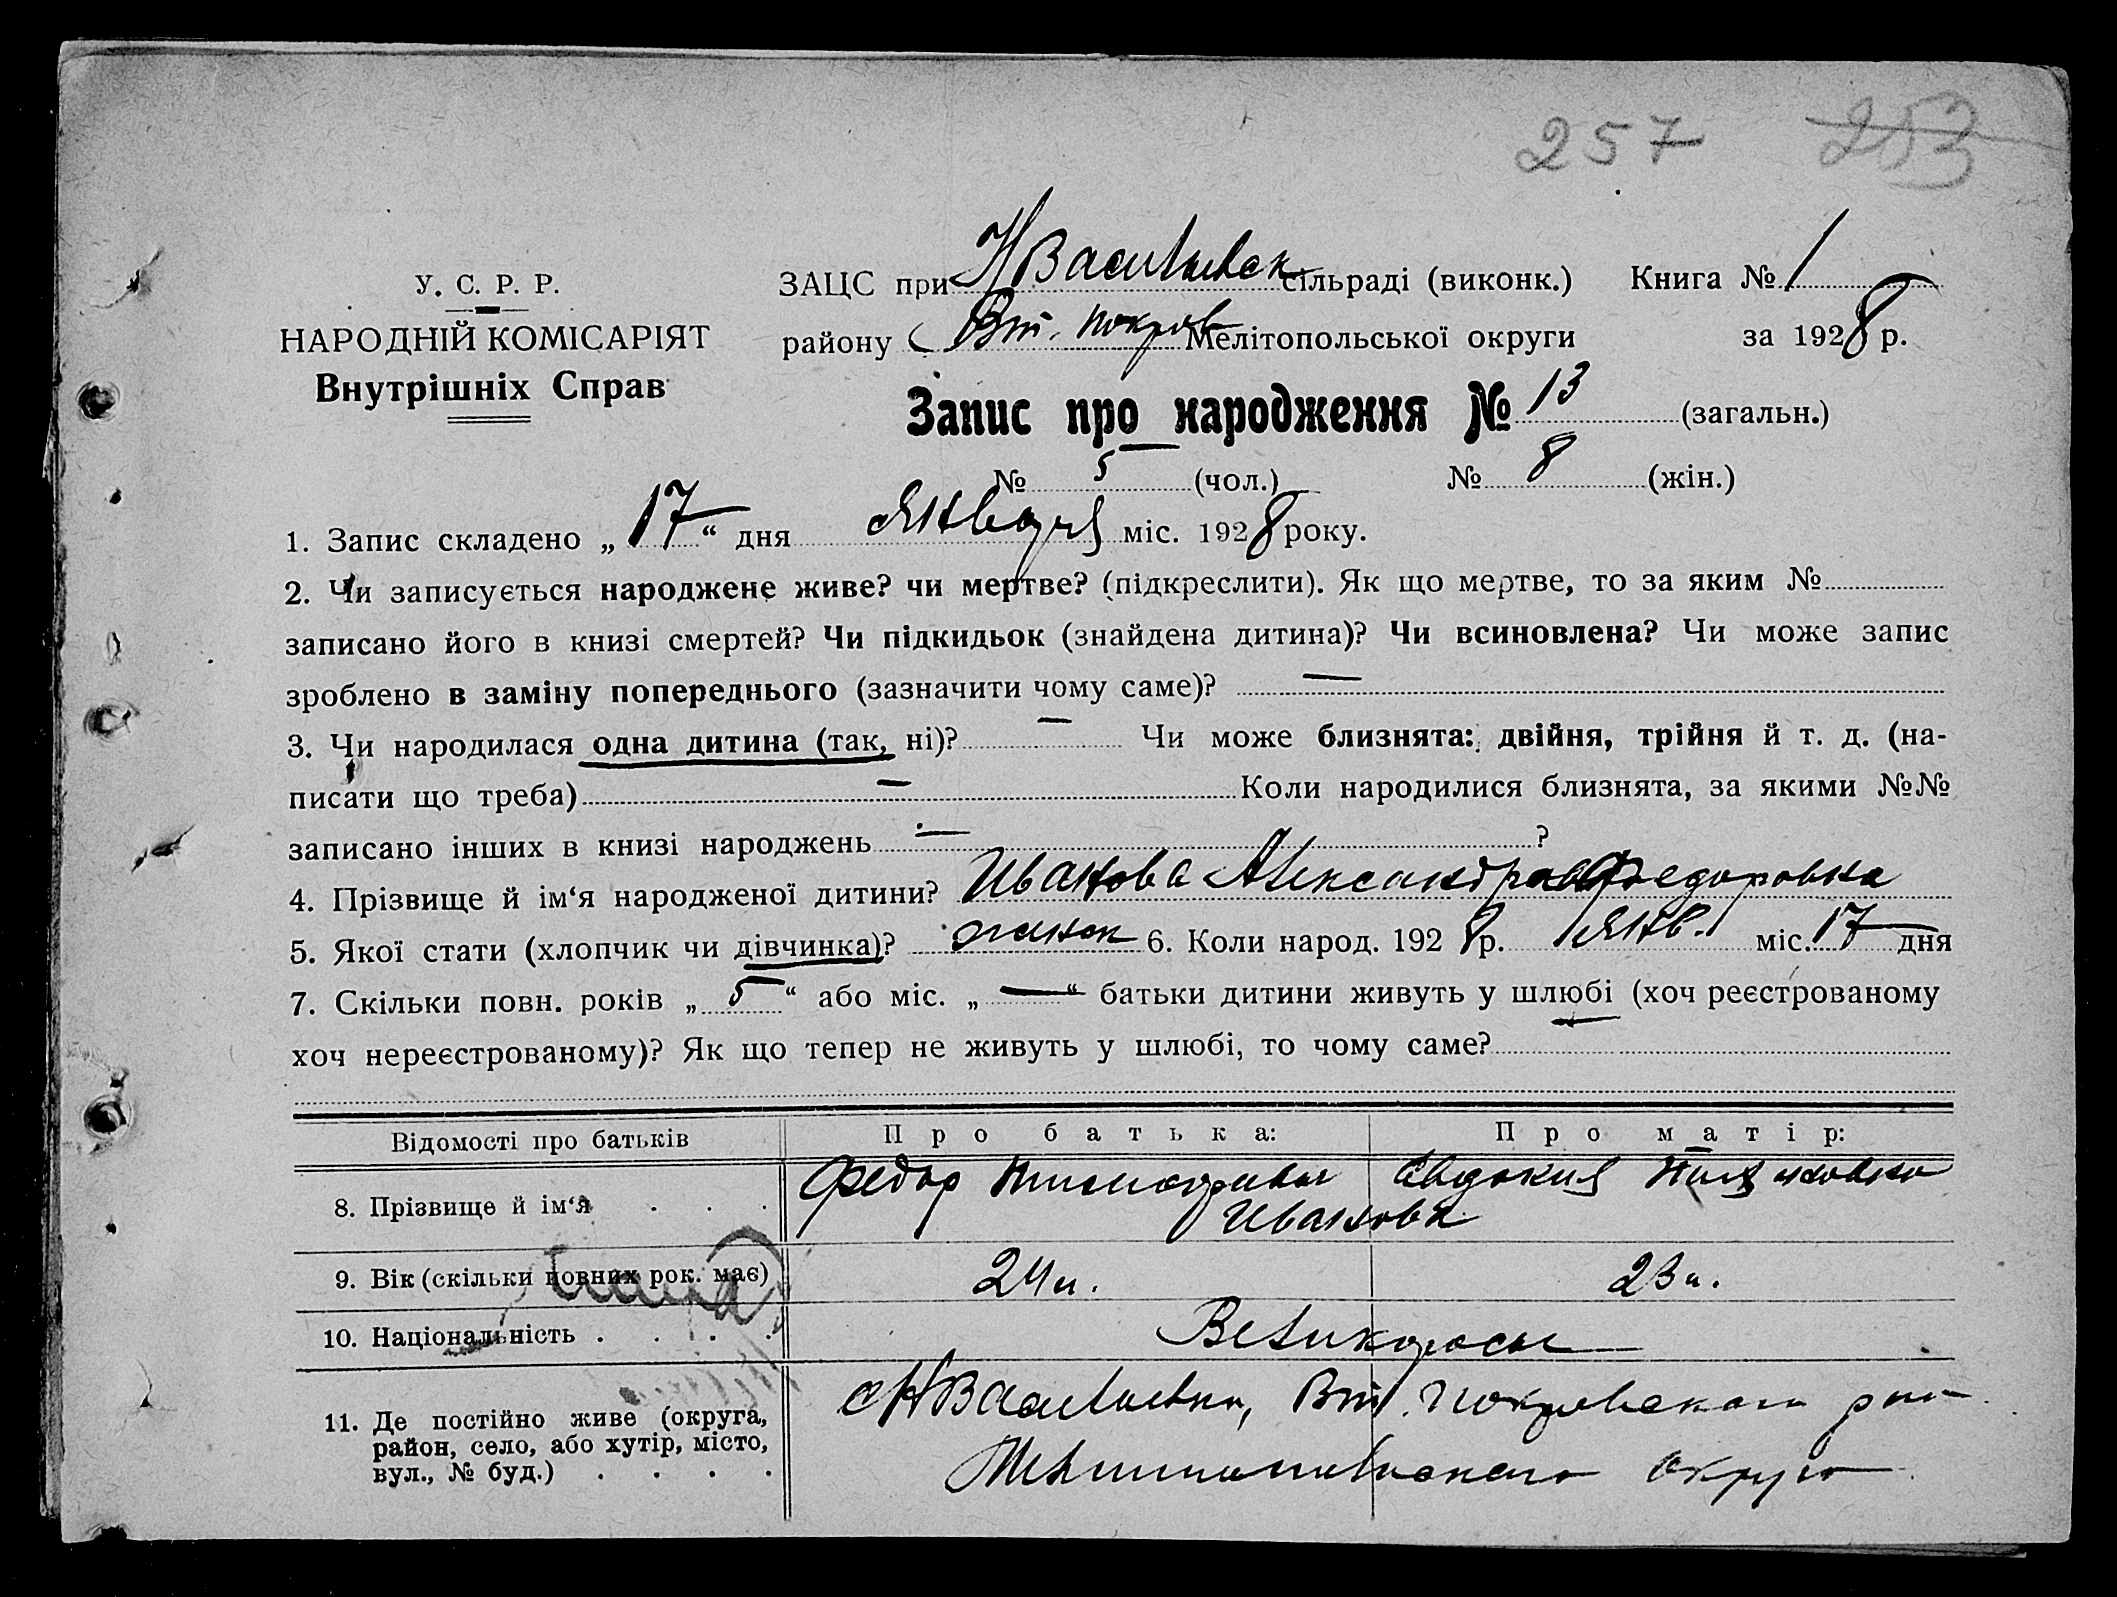 257 253
У. С. Р. Р.
НАРОДНІЙ КОМІСАРІЯТ
Внутрішніх Справ
ЗАЦС при НВасильевск сільраді (виконк.) Книга № 1
району Вт. Покров Мелітопольської округи за 1928 р.
Запис про народження № 13 (загальн.)
№ 5 (чол.) № 8 (жін.)
1. Запис складено „ 17 “ дня Января міс. 1928 року.
2. Чи записується народжене живе? чи мертве? (підкреслити). Як що мертве, то за яким №
записано його в книзі смертей? Чи підкидьок (знайдена дитина)? Чи всиновлена? Чи може запис
зроблено в заміну попереднього (зазначити чому саме)? —
3. Чи народилася одна дитина (так, ні)? — Чи може близнята: двійня, трійня й т. д. (на-
писати що треба) — Коли народилися близнята, за якими №№
записано інших в книзі народжень — ?
4. Прізвище й ім‘я народженої дитини? Иванова Александра Федоровна
5. Якої стати (хлопчик чи дівчинка)? женск 6. Коли народ. 1928 р. Янв. міс. 17 дня
7. Скільки повн. років „ 5 “ або міс. „ — “ батьки дитини живуть у шлюбі (хоч реєстрованому
хоч нереєстрованому)? Як що тепер не живуть у шлюбі, то чому саме?
Відомості про батьків Про батька: Про матір:
8. Прізвище й ім‘я . . . Федор Евдокия
Иванова
9. Вік (скільки повних рок. має) 24 л. 23 л.
10. Національність . . . . Великоросы
11. Де постійно живе (округа, с НВасильевка, Вт. Покровского рай
район, село, або хутір, місто,
вул., № буд.) . . . . Мелитопольского округа